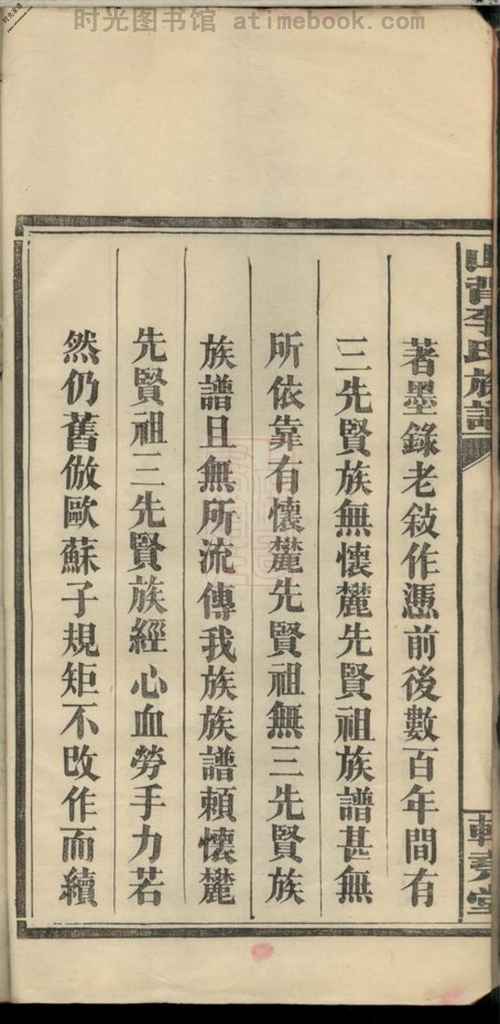 时光图书馆 atimebook.com
山背李氏族譜
著墨錄老敍作憑前後數百年間有
三先賢族無懷麓先賢祖族譜甚無
所依靠有懷麓先賢祖無三先賢族
族譜且無所流傳我族族譜賴懷麓
先賢祖三先賢族經心血勞手力若
然仍舊倣歐蘇子規矩不改作而續